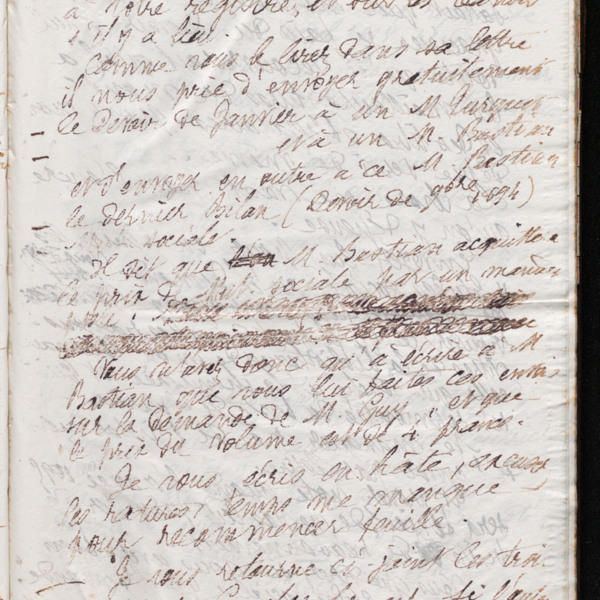 à votre registre, et sur les
s'il y a lieu.
Comme vous le lirez dans sa lettre
il nous prie d'envoyer gratuitement
le Devoir de Janvier à un M.
et à un M. Bastian
et d'envoyer en outre à ce M. Bastian
le dernier Bilan (Devoir de 9bre 1894)
sociale.
Il dit que M. Bastian acquittera
le prix de sociale par un mandat
Vous n'avez donc qu'à écrire à M
Bastian que vous lui faites ces envois
sur la demande de M. Guy, et que
le prix du volume est de 4 francs.
Je vous écris en hâte, excusez
les ratures, temps me manque
pour recommencer feuille.
Je vous retourne ci-joint